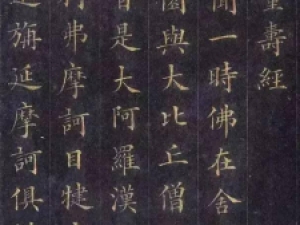 量壽經
聞一時佛在舍
園與大比丘僧
皆是大阿羅漢
利弗摩訶目犍
迦旃延摩訶俱